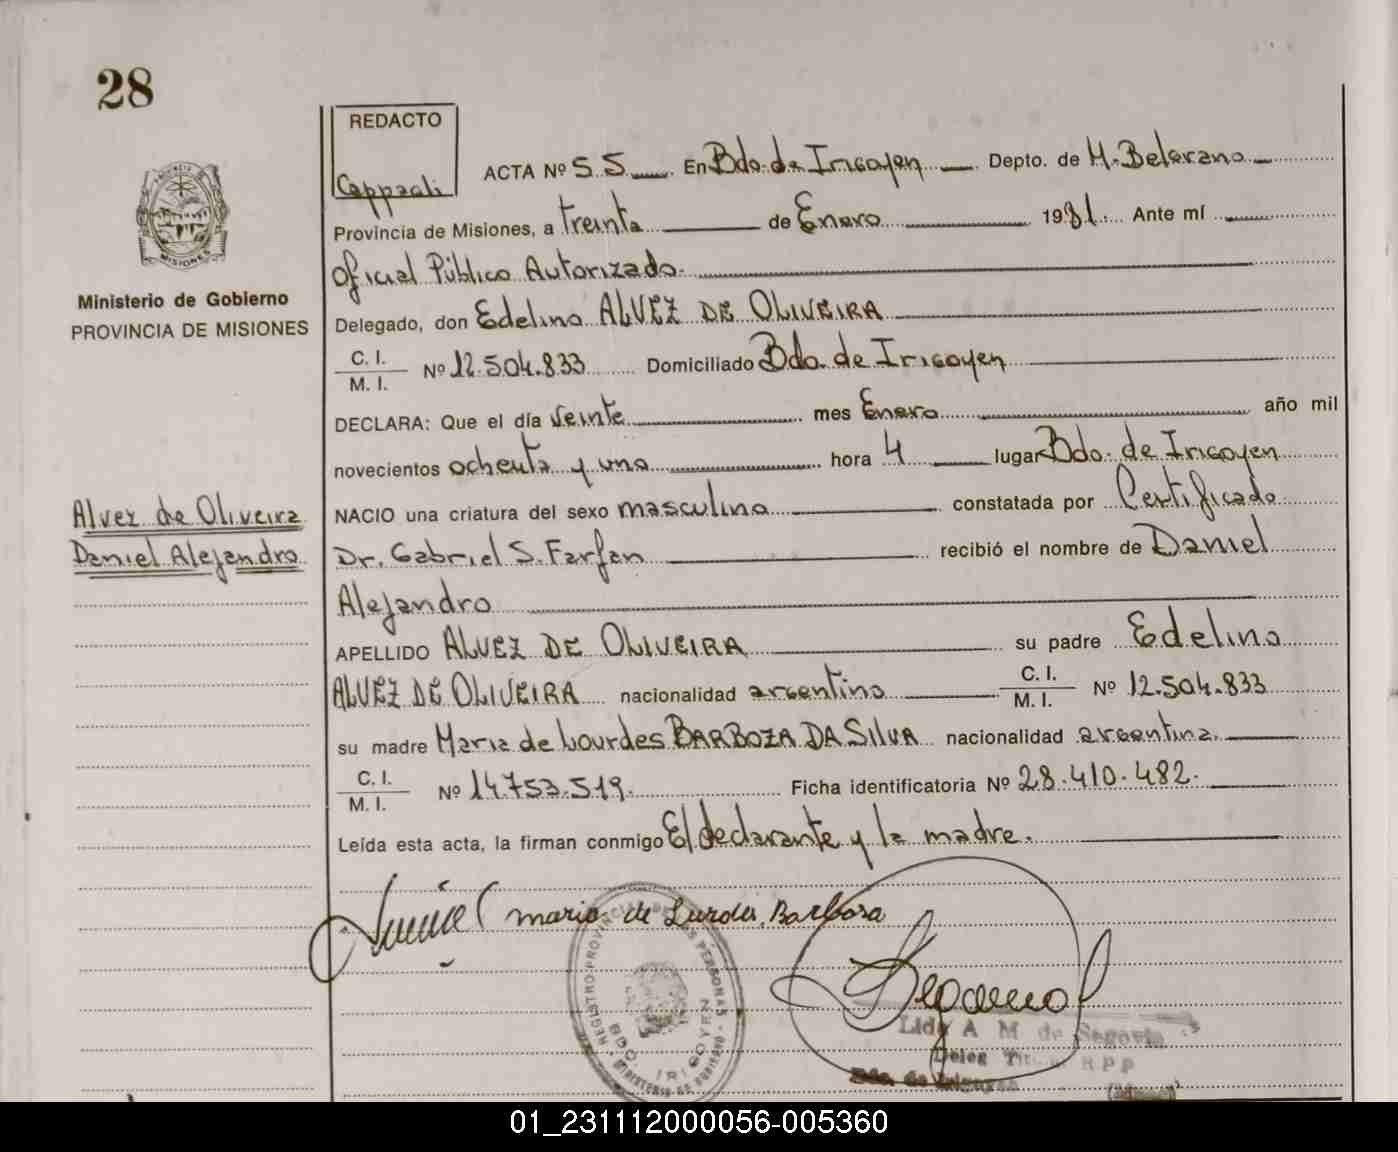 28
REDACTO
ACTA Nº 55 En Bdo. de Irigoyen Depto. de M. Belgrano
Provincia de Misiones, a treinta de Enero 1981 Ante mí
Oficial Público Autorizado.
Ministerio de Gobierno
PROVINCIA DE MISIONES
Delegado, don Edelino ALVEZ DE OLIVEIRA
C. I.
M. I. Nº 12.504.833 Domiciliado Bdo. de Irigoyen
DECLARA: Que el día veinte mes Enero año mil
novecientos ochenta y uno hora 4 lugar Bdo. de Irigoyen
Alvez de Oliveira
Daniel Alejandro
NACIO una criatura del sexo masculino constatada por Certificado
Dr. Gabriel S. Farfan recibió el nombre de Daniel
Alejandro
APELLIDO ALVEZ DE OLIVEIRA su padre Edelino
ALVEZ DE OLIVEIRA nacionalidad argentino C. I. M. I. Nº 12.504.833
su madre Maria de Lourdes BARBOZA DA SILVA nacionalidad argentina.
C. I.
M. I. Nº 14.753.519. Ficha identificatoria Nº 28.410.482.
Leída esta acta, la firman conmigo El declarante y la madre.
maria de Lurdes Barbosa
REGISTRO PROVINCIAL DE LAS PERSONAS
BDO. IRIGOYEN
Lida A M de Segovia
Deleg R P P
Bdo. de Irigoyen
01_231112000056-005360